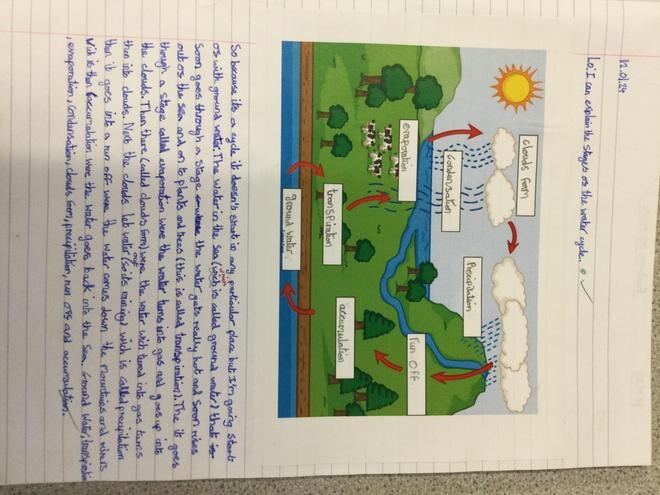 12.01.24
Lo: I can explain the stages os the water cycle.
clouds form
condensation
Precipitation
evaporation
transpiration
run off
accumulation
ground water.
So because its a cycle it doesn't start in any particular place but I'm going start
os with ground water. The water in the sea (wich is called ground water) that is
soon goes through a stage were the water gets really hot and soon rises
out os the sea and on to plants and trees (this is called transpiration). The it goes
though a stage called evaporation were the water turns into gas and goes up into
the clouds. Then there (called clouds form) were the water wich tured into gas turns
then into clouds. Next the clouds let out water (so its raining) wich is called precipitation
then it goes into a run off were the water comes down the mountains and rivers
Wich is then accumulation were the water goes back into the sea. Ground water, transpiration
, evaporation, condensation, clouds form, precipitation, run off and accumulation.